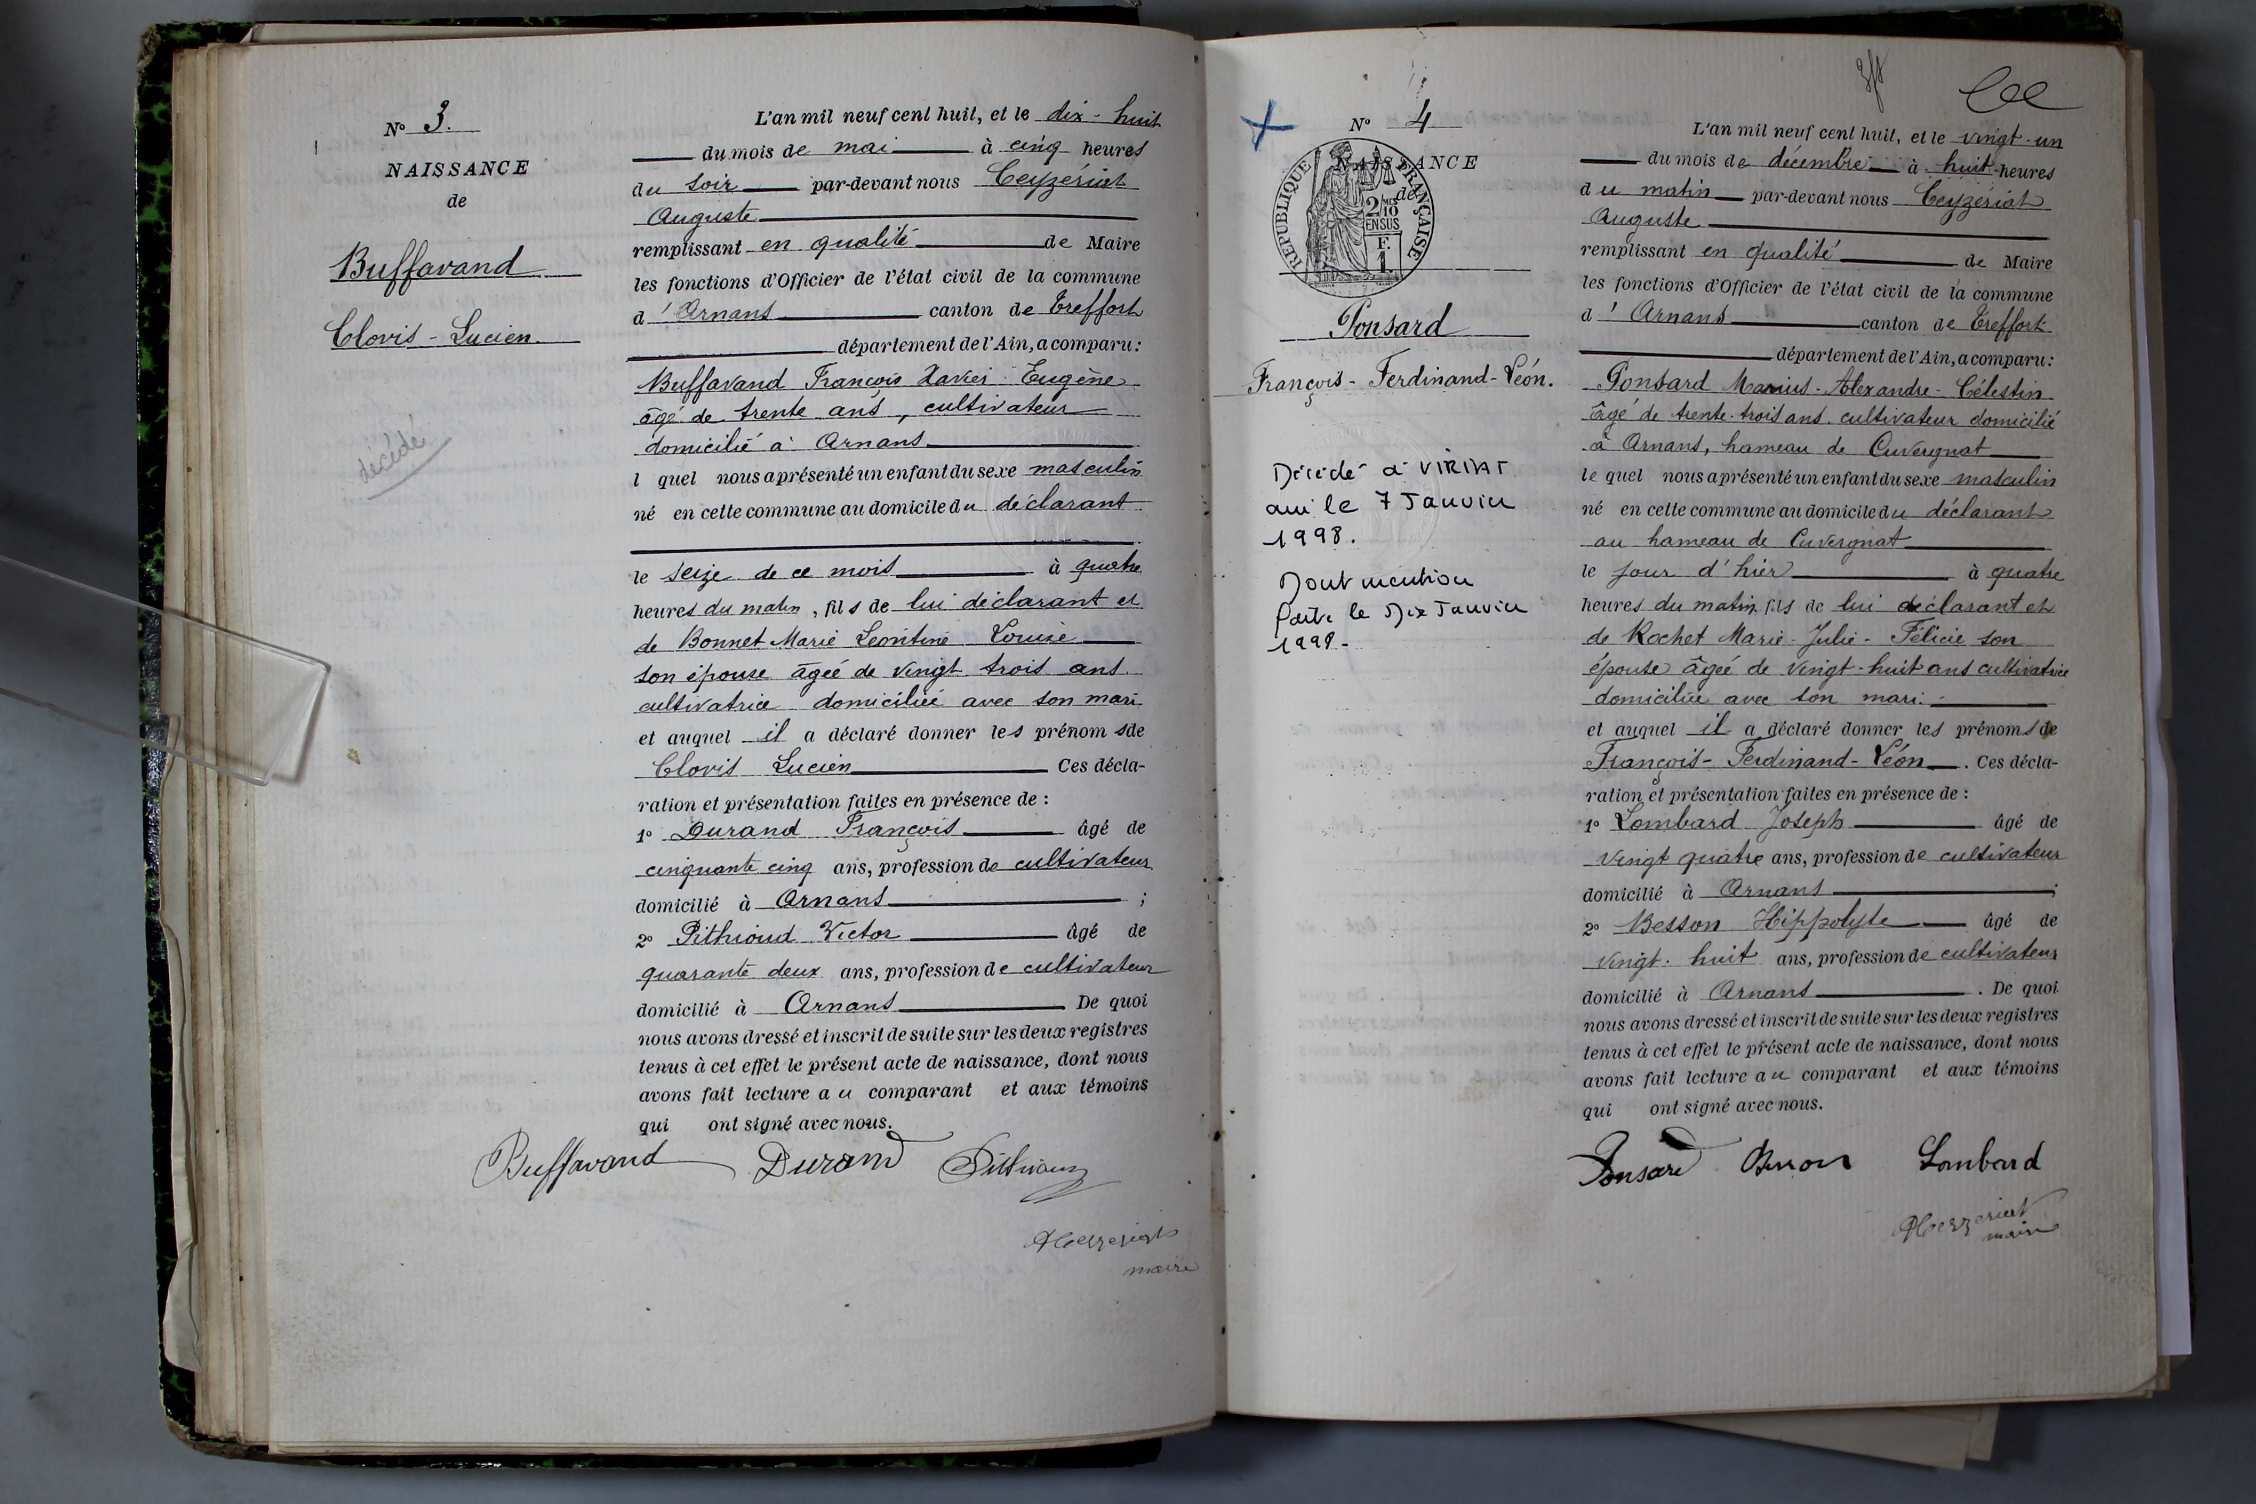 N° 3.
NAISSANCE
de
Buffavand
Clovis - Lucien.
décédé
L'an mil neuf cent huit, et le dix - huit
du mois de mai à cinq heures
du soir par-devant nous Ceyzériat
Auguste
remplissant en qualité de Maire
les fonctions d'Officier de l'état civil de la commune
d'Arnans canton de Treffort
département de l'Ain, a comparu :
Buffavand François Xavier Eugène
âgé de trente ans, cultivateur
domicilié à Arnans
l quel nous a présenté un enfant du sexe masculin
né en cette commune au domicile du déclarant
le seize de ce mois à quatre
heures du matin, fils de lui déclarant et
de Bonnet Marie Léontine Louise
son épouse âgée de vingt trois ans
cultivatrice domiciliée avec son mari
et auquel il a déclaré donner les prénoms de
Clovis Lucien Ces décla-
ration et présentation faites en présence de :
1° Durand François âgé de
cinquante cinq ans, profession de cultivateur
domicilié à Arnans ;
2° Pithioud Victor âgé de
quarante deux ans, profession de cultivateur
domicilié à Arnans De quoi
nous avons dressé et inscrit de suite sur les deux registres
tenus à cet effet le présent acte de naissance, dont nous
avons fait lecture au comparant et aux témoins
qui ont signé avec nous.
Buffavand Durand Pithioud
Ceyzeriat
maire
N° 4
NAISSANCE
de
RÉPUBLIQUE FRANÇAISE
2/10
EN SUS
F.
1
Ponsard
François - Ferdinand - Léon.
Décédé à VIRIAT
ain le 7 Janvier
1998.
Dont mention
faite le Dix Janvier
1998-
L'an mil neuf cent huit, et le vingt-un
du mois de décembre à huit heures
du matin par-devant nous Ceyzériat
Auguste
remplissant en qualité de Maire
les fonctions d'Officier de l'état civil de la commune
d'Arnans canton de Treffort
département de l'Ain, a comparu :
Ponsard Marius - Alexandre - Célestin
âgé de trente-trois ans cultivateur domicilié
à Arnans, hameau de Cuvergnat
le quel nous a présenté un enfant du sexe masculin
né en cette commune au domicile du déclarant
au hameau de Cuvergnat
le jour d'hier à quatre
heures du matin fils de lui déclarant et
de Rochet Marie - Julie - Félicie son
épouse âgée de vingt-huit ans cultivatrice
domiciliée avec son mari.
et auquel il a déclaré donner les prénoms de
François - Ferdinand - Léon . Ces décla-
ration et présentation faites en présence de :
1° Lombard Joseph âgé de
vingt quatre ans, profession de cultivateur
domicilié à Arnans ;
2° Besson Hippolyte âgé de
vingt-huit ans, profession de cultivateur
domicilié à Arnans . De quoi
nous avons dressé et inscrit de suite sur les deux registres
tenus à cet effet le présent acte de naissance, dont nous
avons fait lecture au comparant et aux témoins
qui ont signé avec nous.
Ponsard Besson Lombard
Ceyzeriat
maire